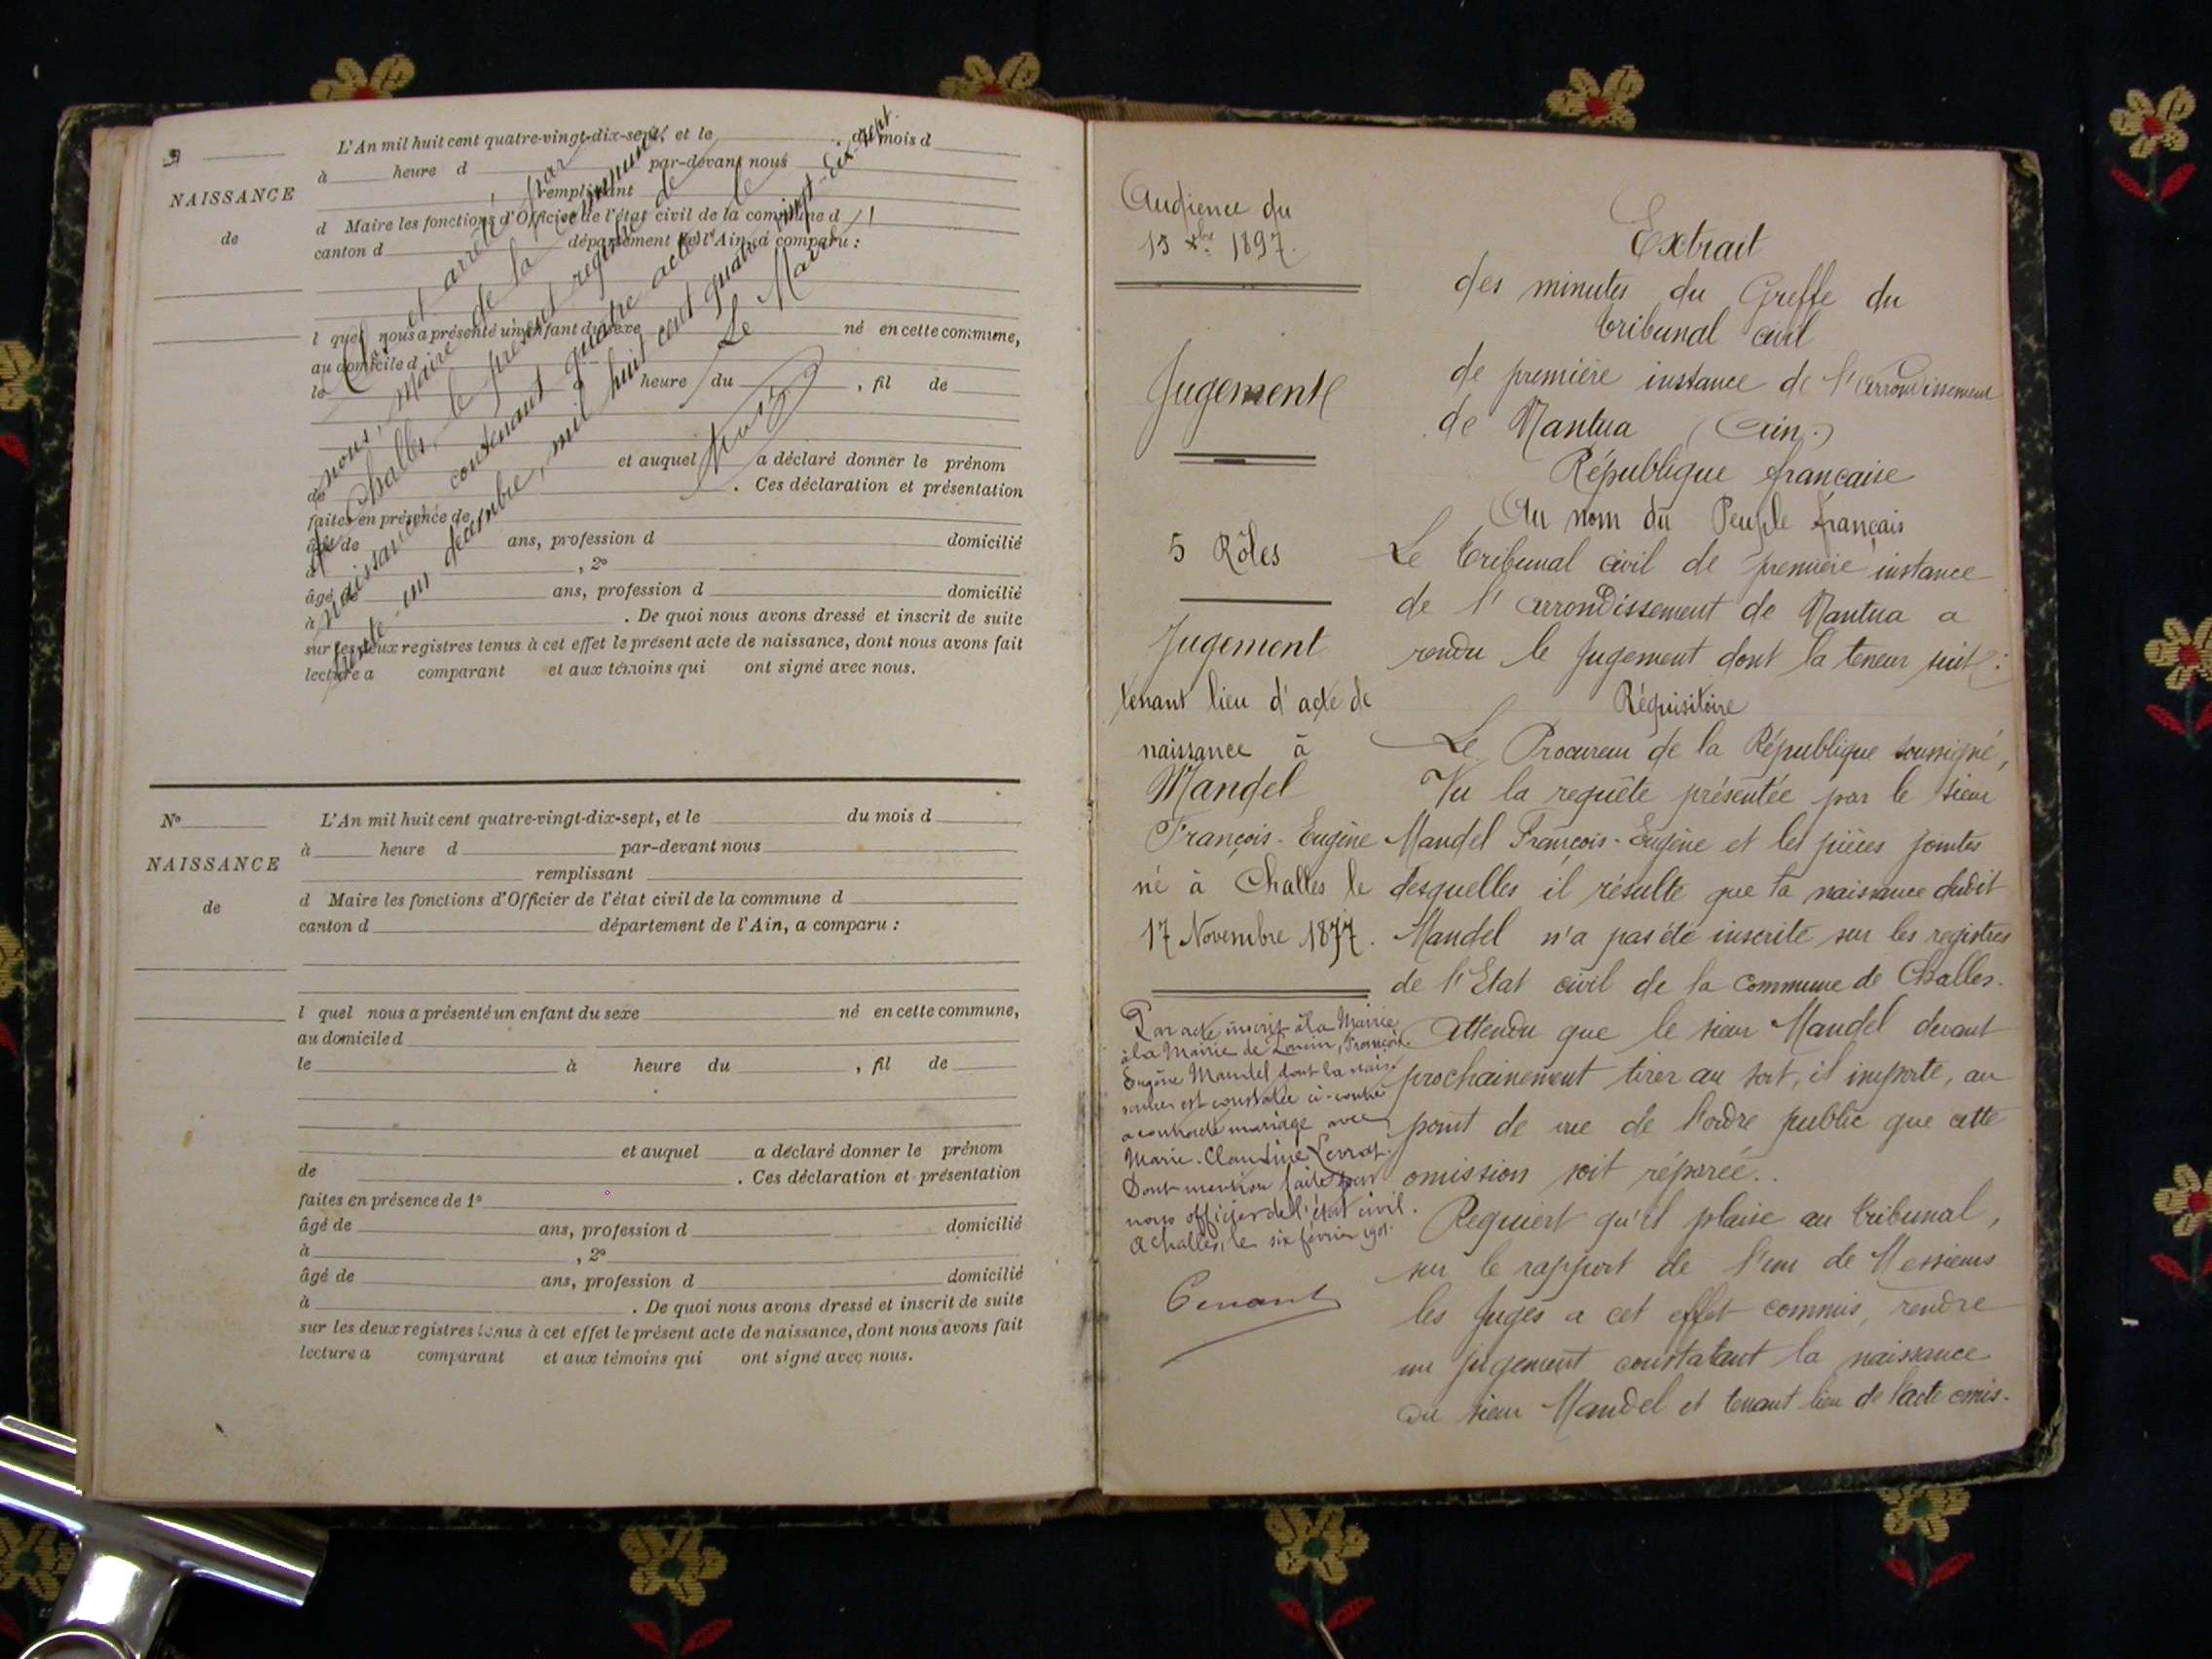 L'An mil huit cent quatre-vingt-dix-sept, et le du mois d
à heure d par-devant nous
NAISSANCE
remplissant
de
d Maire les fonctions d'Officier de l'état civil de la commune d
canton d département de l'Ain, a comparu :
l quel nous a présenté un enfant du sexe né en cette commune,
au domicile d
le à heure du , fil de
et auquel a déclaré donner le prénom
de . Ces déclaration et présentation
faites en présence de
âgé de ans, profession d domicilié
à , 2º
âgé de ans, profession d domicilié
à . De quoi nous avons dressé et inscrit de suite
sur les deux registres tenus à cet effet le présent acte de naissance, dont nous avons fait
lecture a comparant et aux témoins qui ont signé avec nous.
Clos et arrêté par
nous, Maire de la commune
de Challes, le présent registre de
naissances contenant quatre actes le
trente-un décembre, mil huit cent quatre-vingt-dix-sept.
Le Maire
Nº
L'An mil huit cent quatre-vingt-dix-sept, et le du mois d
à heure d par-devant nous
NAISSANCE
remplissant
de
d Maire les fonctions d'Officier de l'état civil de la commune d
canton d département de l'Ain, a comparu :
l quel nous a présenté un enfant du sexe né en cette commune,
au domicile d
le à heure du , fil de
et auquel a déclaré donner le prénom
de . Ces déclaration et présentation
faites en présence de 1º
âgé de ans, profession d domicilié
à , 2º
âgé de ans, profession d domicilié
à . De quoi nous avons dressé et inscrit de suite
sur les deux registres tenus à cet effet le présent acte de naissance, dont nous avons fait
lecture a comparant et aux témoins qui ont signé avec nous.
Audience du
15 Xbre 1897.
Jugement
5 Rôles
Jugement
tenant lieu d'acte de
naissance à
Mandel
François-Eugène
né à Challes le
17 Novembre 1877.
Par acte inscrit à la Mairie
à la Mairie de François
Eugène Mandel dont la nais-
sance est constatée ci-contre
a contracté mariage avec
Marie-Claudine Levrat.
Dont mention faite par
nous officier de l'état civil.
A Challes, le six février 1901.
Extrait
des minutes du Greffe du
tribunal civil
de première instance de l'arrondissement
de Nantua (Ain.)
République française
Au nom du Peuple français
Le tribunal civil de première instance
de l'arrondissement de Nantua a
rendu le Jugement dont la teneur suit :
Réquisitoire
Le Procureur de la République soussigné,
Vu la requête présentée par le sieur
Mandel François-Eugène et les pièces jointes
desquelles il résulte que la naissance dudit
Mandel n'a pas été inscrite sur les registres
de l'Etat civil de la commune de Challes.
Attendu que le sieur Mandel devant
prochainement tirer au sort, il importe, au
point de vue de l'ordre public que cette
omission soit réparée.
Requiert qu'il plaise au tribunal,
sur le rapport de l'un de Messieurs
les Juges a cet effet commis, rendre
un jugement constatant la naissance
du sieur Mandel et tenant lieu de l'acte omis.